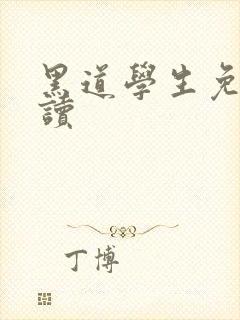 黑道學生免
讀
丁博